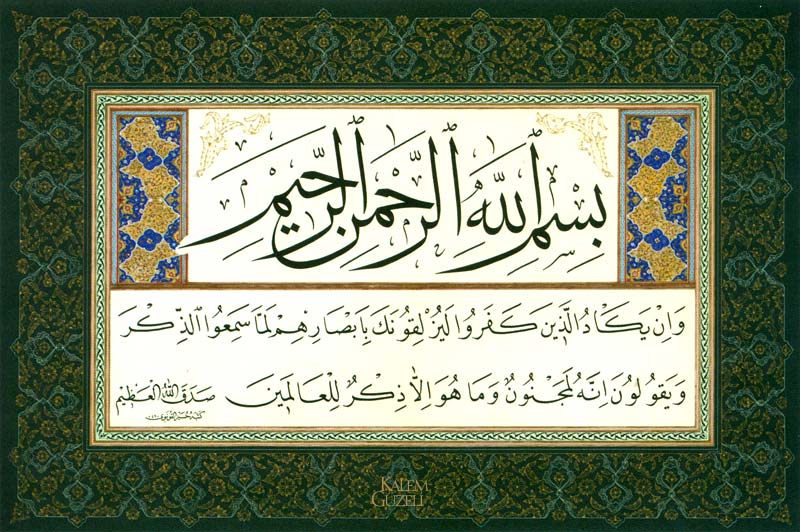 بِسْمِ اللّٰهِ الرَّحْمٰنِ الرَّحِيمِ
وَاِنْ يَكَادُ الَّذِينَ كَفَرُوا لَيُزْلِقُونَكَ بِاَبْصَارِهِمْ لَمَّا سَمِعُوا الذِّكْرَ
وَيَقُولُونَ اِنَّهُ لَمَجْنُونٌ وَمَا هُوَ اِلَّا ذِكْرٌ لِلْعَالَمِينَ صَدَقَ اللّٰهُ الْعَظِيمُ
KALEM
GÜZELİ